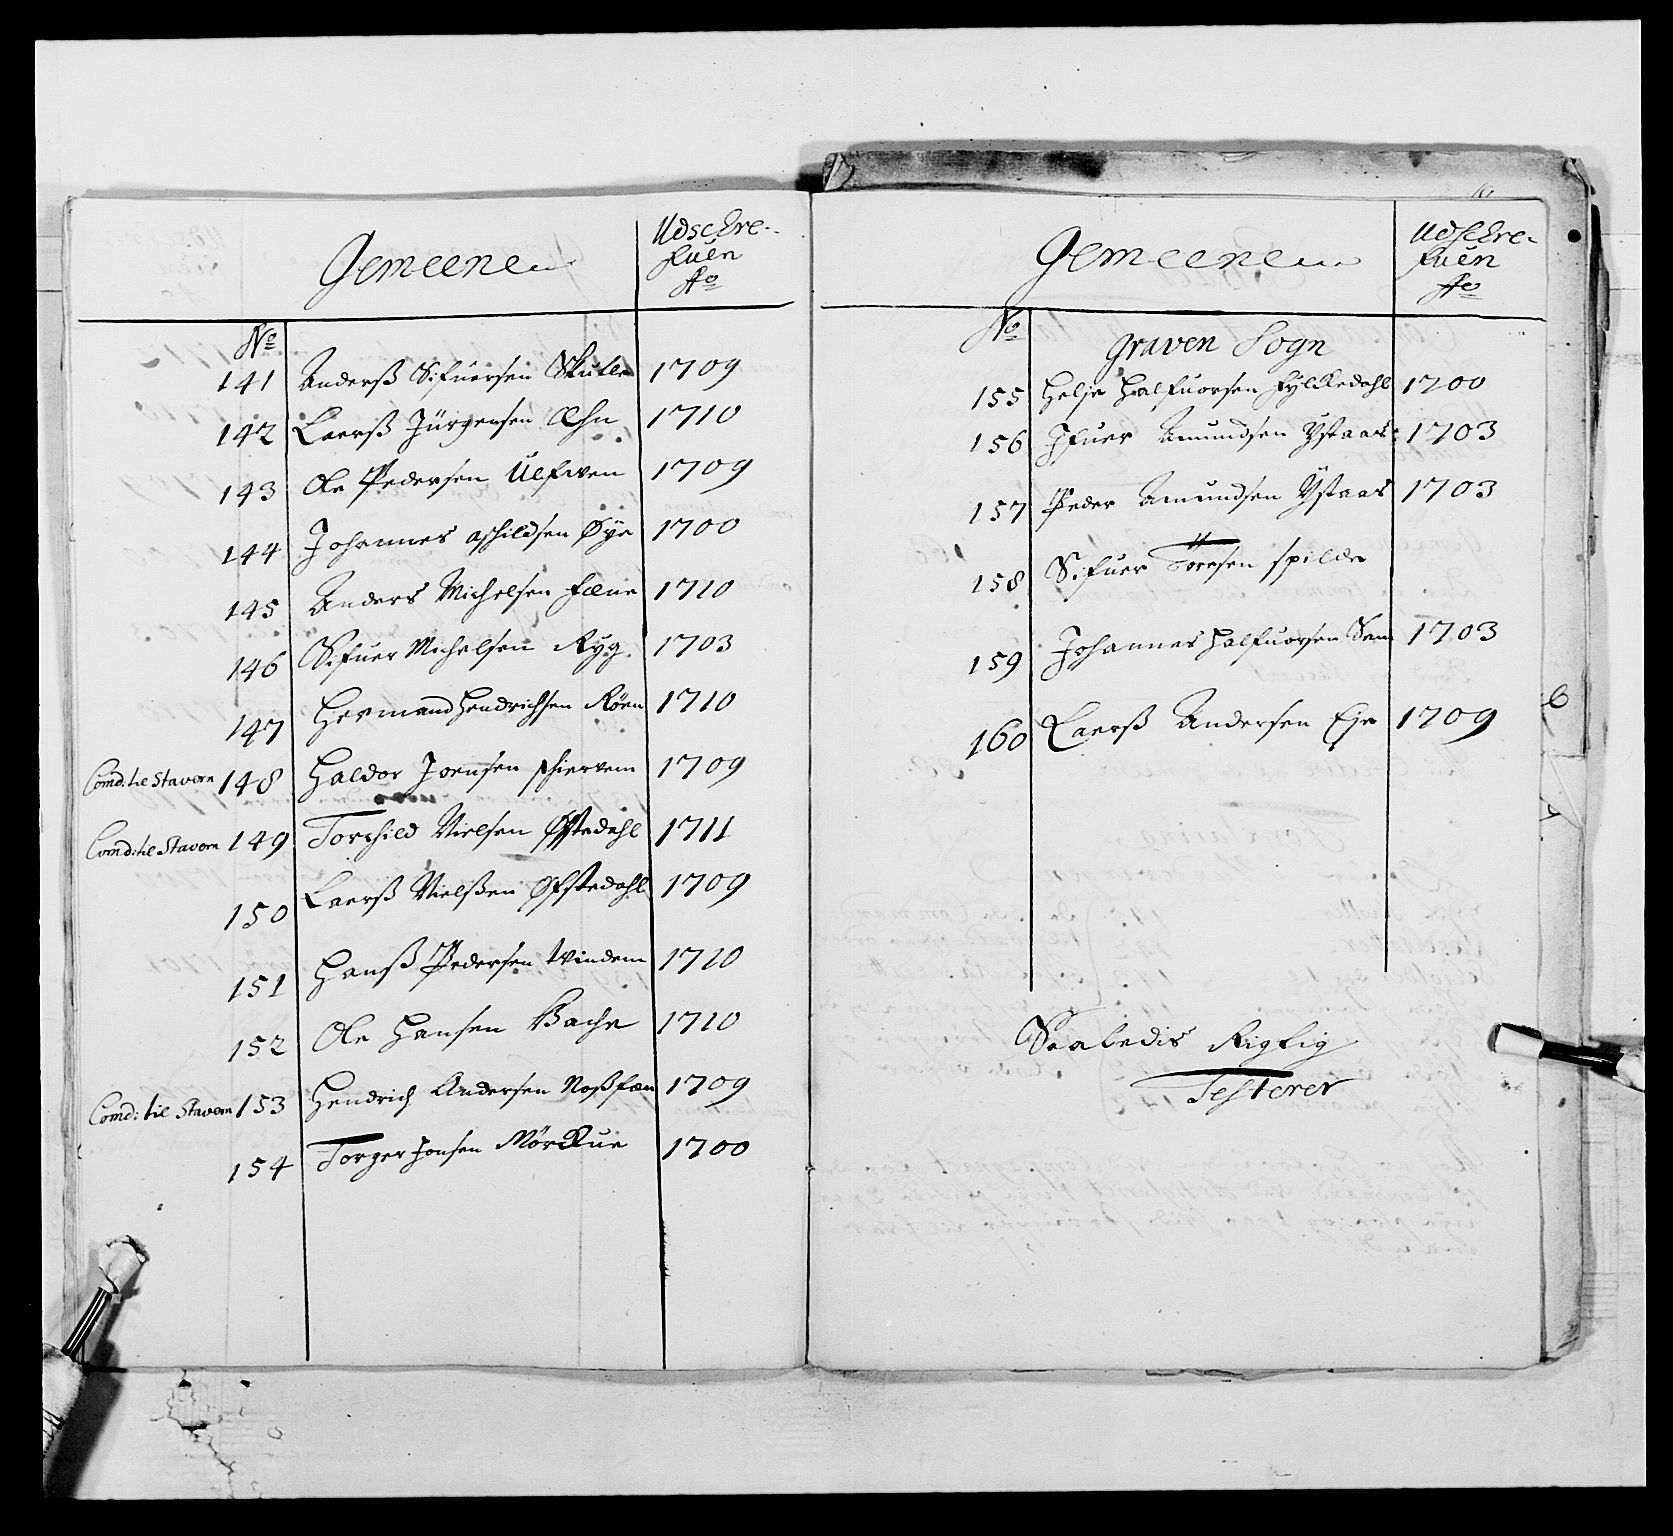 Gemeene
Udskre-
fuen
Ao
No
141 Anderß Sifuersen Skutle 1709
142 Laerß Jürgensen Æhn 1710
143 Ole Pedersen Ulfwen 1709
144 Johannes aschildsen Øye 1700
145 Anders Michelsen Fæne 1710
146 Sifuer Michelsen Ryg 1703
147 Hermand Hendrichsen Röen 1710
Comd: til Stavern 148 Haldor Joensen schierven 1709
Comd: til Stavern 149 Torchild Nielsen Øfstedahl 1711
150 Laerß Nielßen Øfstedahl 1709
151 Hanß Pedersen twindem 1710
152 Ole Hansen Bache 1710
Comd: til Stavern 153 Hendrich Andersen Noßfæn 1709
154 Torger Jonsen Mørkue 1700
Gemeene
Udskre-
fuen
Ao
No
Graven Sogn
155 Helje Halfuorsen Fylkedahl 1700
156 Ifuer Amundsen Ystaas 1703
157 Peder Amundsen Ystaas 1703
158 Sifuer Töresen spilde
159 Johannes Halfuorsen Sem 1703
160 Laerß Andersen Eje 1709
Saaledis Rigtig
Testerer